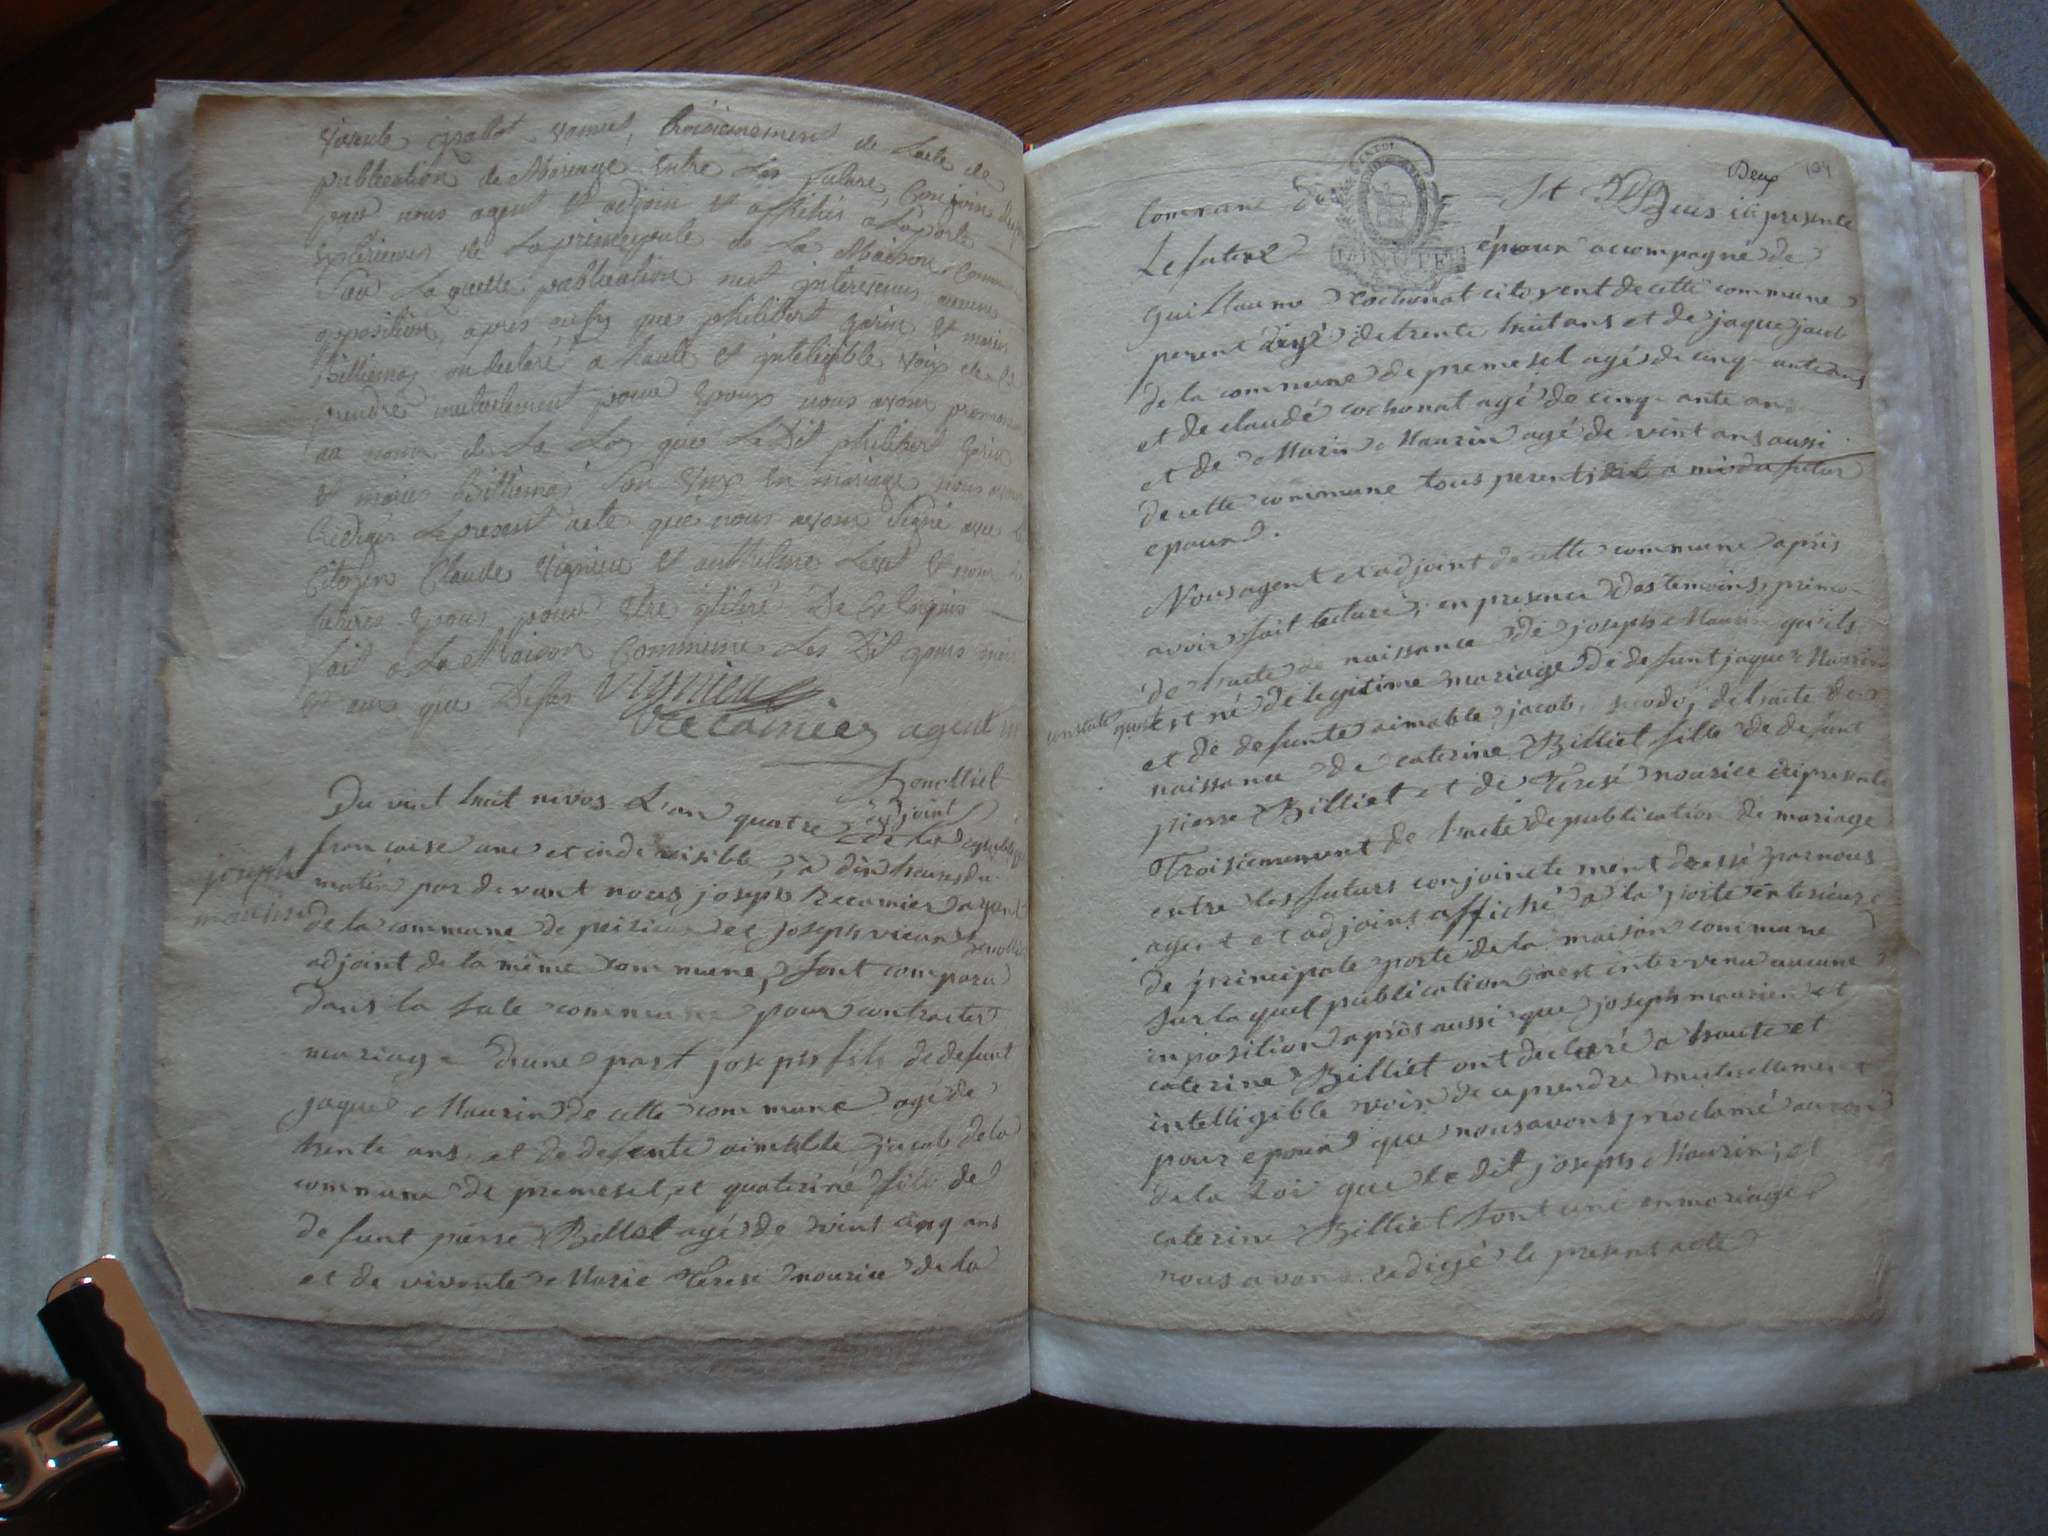 publication de Mariage entre Les future Conjoin
par nous agent et adjoin et affiches a La porte
exterieure de La principale de La Maison Commune
Sur La quelle publication net intervenus aucune
opposition, apres aussy que philibert gorin et marie
Billiema on declaré a haute et inteligible voix de se
prendre mutuelement pour Epoux nous avons prononcé
au nom de La Loy que Le Dit philibert gorin
et marie Billiema Son Unys en mariage nous avons
Redigés Le present acte que nous avons Signé avec Le
Citoyen Claude Vignieu et
futures Epous pour etre
fait a La Maison Commune Les Dit jours mois
et an que Desus Vignieu
Récamier agent
Benolliet
adjoint
Du vint huit nivos L'an quatre de la republique
francaise une et indevisible, à dix heures du
joseph
maurin
matin par devant nous joseph Recamier agent
de la commune de peisieux et joseph vican Benolliet
adjoint de la même commune, sont comparu
dans la sale commune pour contracter
mariage d'une part joseph fils de defunt
jaque Maurin de cette commune agé de
trente ans et de defunte aimable jacob de la
commune de premesel, et quaterine fille de
defunt pierre Billet agé de vint cinq ans
et de vivente Marie Terese nourice de la
Deux 104
commune de St Buis ici presente
MINUTE
Le future époux accompagné de
guillaume cochonat citoyent de cette commune
perent agé de trente huit ans et de jaque jacob
de la commune de premesel agé de cinq ante ans
et de claude cochonat agé de cinq ante ans
et de Marin Maurin agé de vint ans aussi
de cette commune tous perent du futur
epoux.
Nous agent et adjoint de cette commune après
avoir fait lecture, en presence des temoins, primo
de l'acte de naissance de joseph Maurin qu'ils
constate qu'il est né de legitime mariage de defunt jaque Maurin
et de defunte aimable jacob, secodo, de l'acte de
naissance de caterine Billiet fille de defunt
pierre Billiet et de Terese nourice ici presente
Troisiemement de l'acte de publication de mariage
entre les futurs conjoinctement dressé par nous
agent et adjoint affiché a la porte enterieure
de principale porte de la maison commune
sur la quel publication n'est intervenu aucune
inposition après aussi que joseph maurien et
caterine Billiet ont declaré a haute et
intelligible voix de ce prendre mutuellement
pour epoux que nous avons proclamé au nom
de la Loi que le dit joseph Maurin, et
caterine Billiet sont uni en mariage
nous avons redigé le present acte